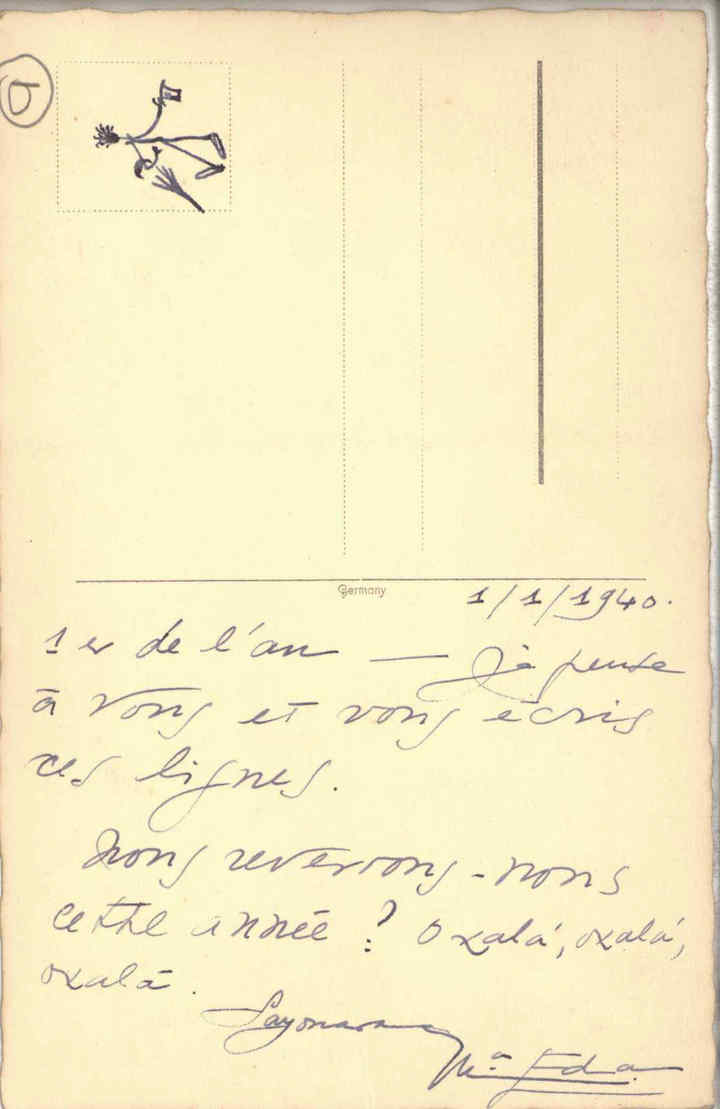 b
Germany
1/1/1940.
1er de l'an — Je pense
à vous et vous écris
ces lignes.
Nous reverrons-nous
cette année? Oxalá, oxalá,
oxalá.
Sayonara
Mª Eda.